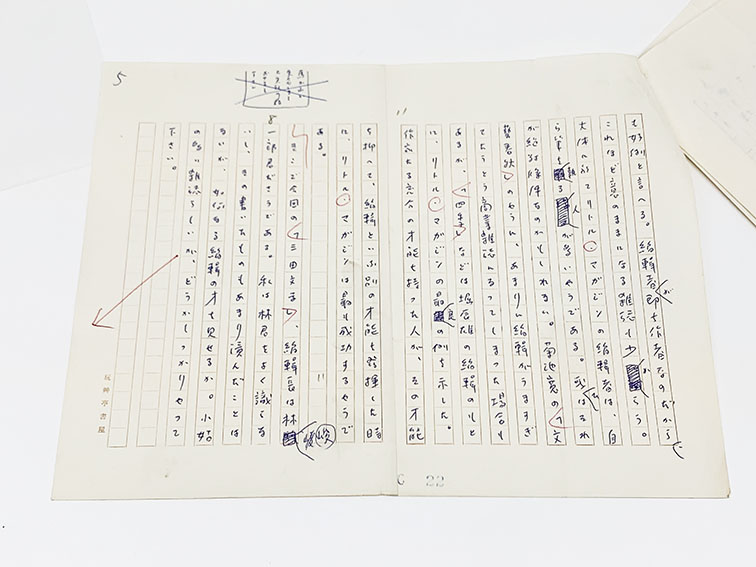 も好例と言へる。編輯者が即ち作者なのだから、
これほど意のままになる雑誌も少からう。
大体に於てリトル・マガジンの編輯者は、自
ら筆も執る人が多いやうである。或はそれ
が絶対条件なのかもしれない。菊池寛の「文
藝春秋」のやうに、あまりに編輯がうますぎ
てたうとう商業雑誌になつてしまつた場合も
あるが、「四季」などは堀辰雄の編輯のもと
に、リトル・マガジンの最良の例を示した。
作家たる充分の才能を持つた人が、その才能
を抑へて、編輯といふ別の才能を発揮した時
に、リトル・マガジンは最も成功するやうで
ある。
そこで今回の「三田文学」、編輯長は林峻
一郎君ださうである。私は林君をよく識らな
いし、その書いたものもあまり読んだことは
ないが、如何なる編輯の才を見せるか。小姑
の多い雑誌らしいが、どうかしつかりやつて
下さい。
5
玩艸亭書屋
22